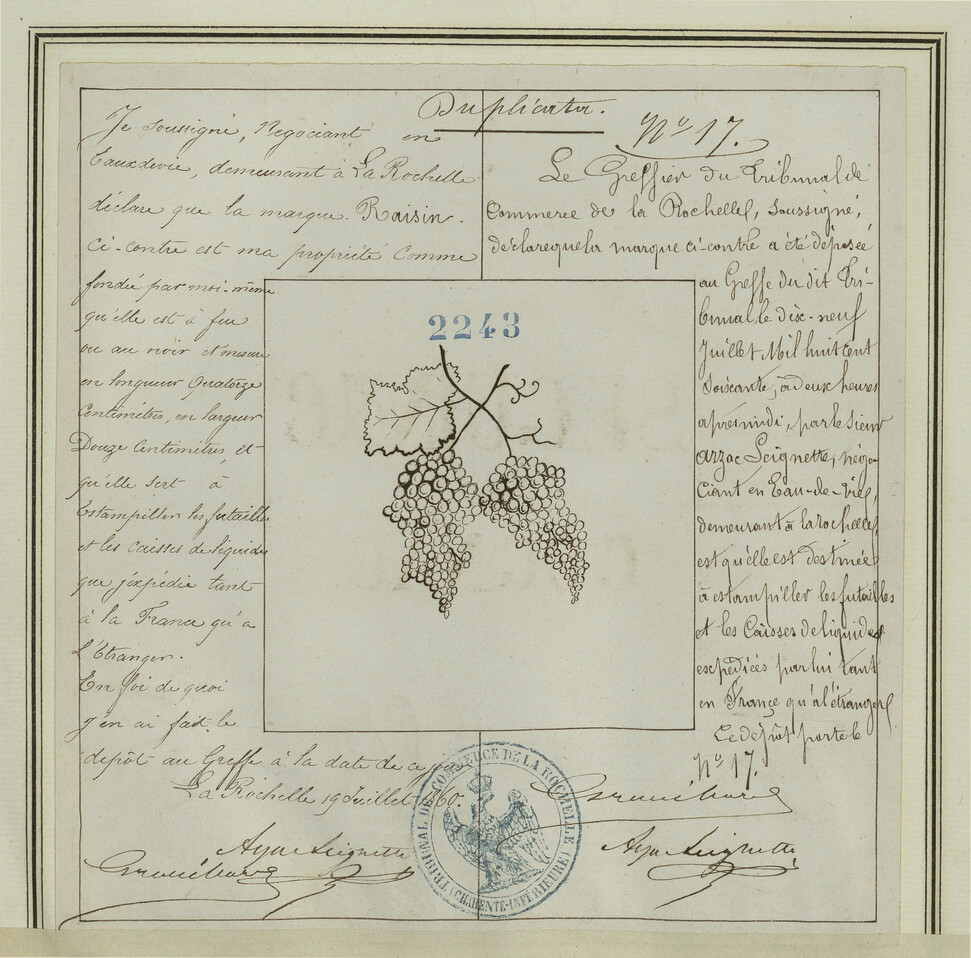 Duplicata.
Je soussigné, Négociant en
Eaux devie, demeurant à La Rochelle
déclare que la marque Raisin.
ci-contre est ma propriété comme
fondée par moi-même
qu'elle est à feu
ou au noir et mesure
en longueur Quatorze
Centimètres, en largeur
Douze Centimètres, et
qu'elle sert à
Estampiller les futailles
et les caisses de liquides
que j'expédie tant
à la France qu'à
l'Etranger.
En foi de quoi
j'en ai fait le
dépôt au Greffe à la date de ce jour
La Rochelle 19 Juillet 1860.
Seignette
No 17.
Le Greffier du Tribunal de
Commerce de la Rochelle, soussigné,
déclare que la marque ci-contre a été déposée
au Greffe du dit Tri-
bunal le dix-neuf
Juillet Mil huit cent
Soixante, à deux heures
après midi, par le sieur
Arzac Seignette, négo-
ciant en Eau-de-Vie,
demeurant à la rochelle,
est qu'elle est destinée
à estampiller les futailles
et les Caisses de liquides
expédiées par lui tant
en France qu'à l'étranger
Le dépôt porte le
No 17.
Seignette
2243
TRIBUNAL DE COMMERCE DE LA ROCHELLE
(CHARENTE-INFÉRIEURE)